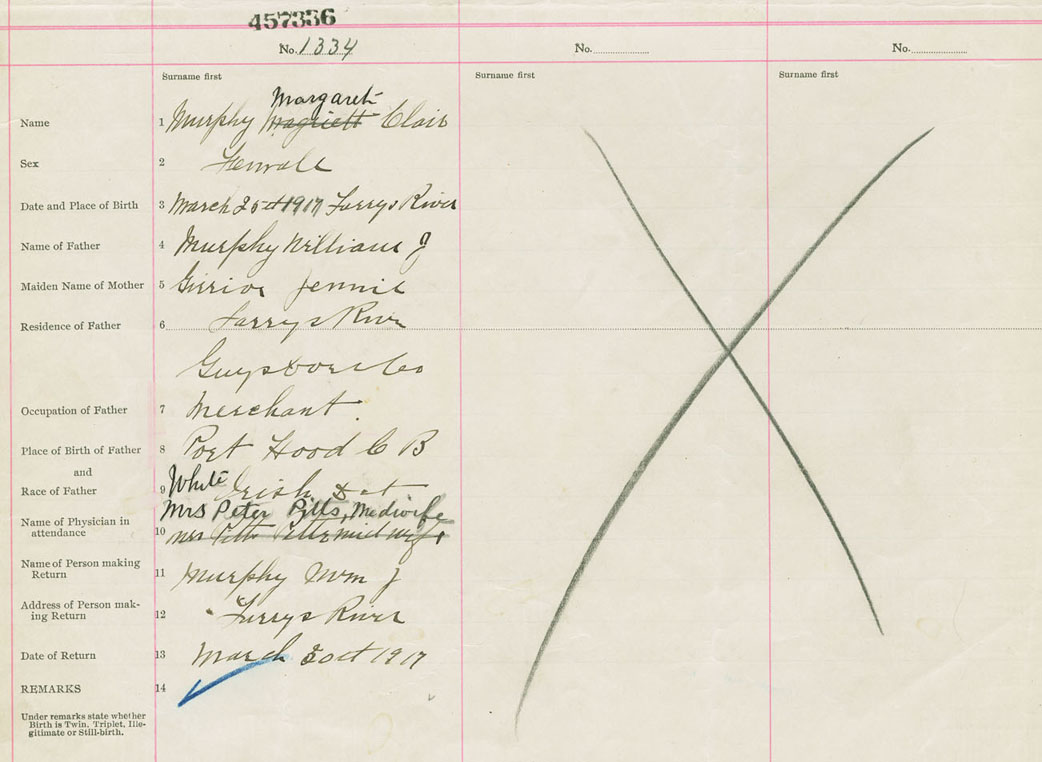 457336
No. 1334 No. No.
Surname first Surname first Surname first
Margaret
Name 1 Murphy Magriett Clair
Sex 2 Femall
Date and Place of Birth 3 March 1917 Larrys River
Name of Father 4 Murphy William J
Maiden Name of Mother 5 Jennie
Residence of Father 6 Larrys River
Guysboro Co
Occupation of Father 7 Merchant.
Place of Birth of Father 8 Port Hood C B
and
Race of Father 9 White Irish
Mrs Peter Pitts, Medwife
Name of Physician in
attendance 10 mrs Pitts midwife
Name of Person making
Return 11 Murphy Wm J
Address of Person mak-
ing Return 12 Larrys River
Date of Return 13 March 1917
REMARKS 14
Under remarks state whether
Birth is Twin, Triplet, Ille-
gitimate or Still-birth.